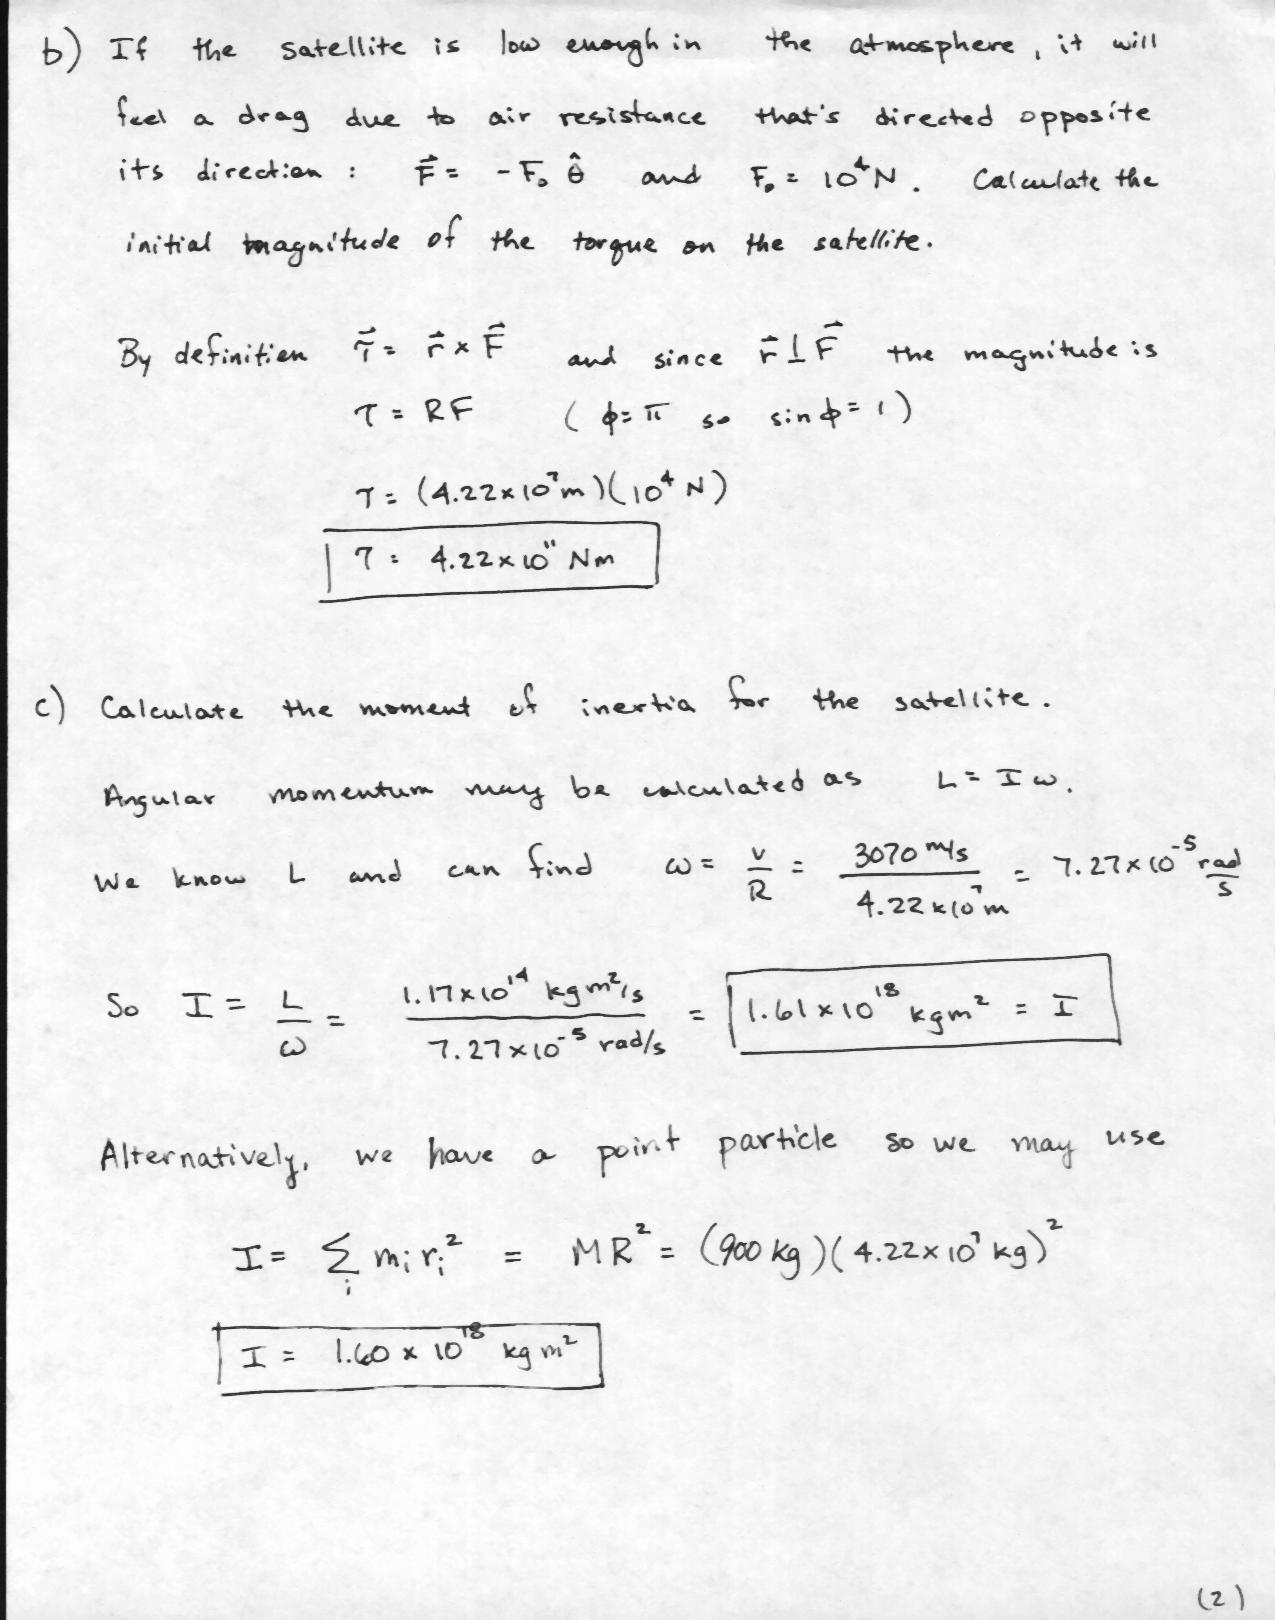 b) If the satellite is low enough in the atmosphere, it will
feel a drag due to air resistance that's directed opposite
its direction : F⃗ = - F₀ θ̂ and F₀ = 10⁴ N. Calculate the
initial magnitude of the torque on the satellite.
By definition τ⃗ = r⃗ × F⃗ and since r⃗ ⊥ F⃗ the magnitude is
τ = RF ( φ = π so sin φ = 1 )
τ = (4.22 × 10⁷ m)(10⁴ N)
τ = 4.22 × 10¹¹ Nm
c) Calculate the moment of inertia for the satellite.
Angular momentum may be calculated as L = I ω.
We know L and can find ω = v/R = 3070 m/s / 4.22 × 10⁷ m = 7.27 × 10⁻⁵ rad/s
So I = L/ω = 1.17 × 10¹⁴ kg m²/s / 7.27 × 10⁻⁵ rad/s = 1.61 × 10¹⁸ kg m² = I
Alternatively, we have a point particle so we may use
I = Σᵢ mᵢ rᵢ² = MR² = (900 kg)(4.22 × 10⁷ kg)²
I = 1.60 × 10¹⁸ kg m²
(2)